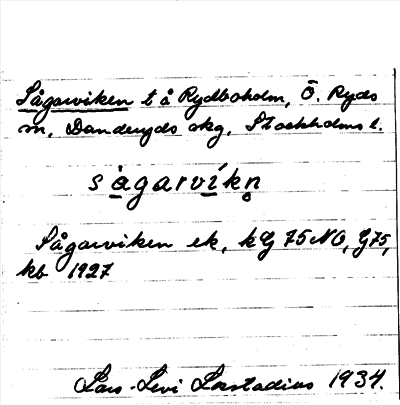 Sågarviken t å Rydboholm, Ö. Ryds
sn, Danderyds skg, Stockholms l.
sågarvíkn̥
Sågarviken ek, kG 75 NO, G75,
kb 1927
Lars-Levi Læstadius 1934.